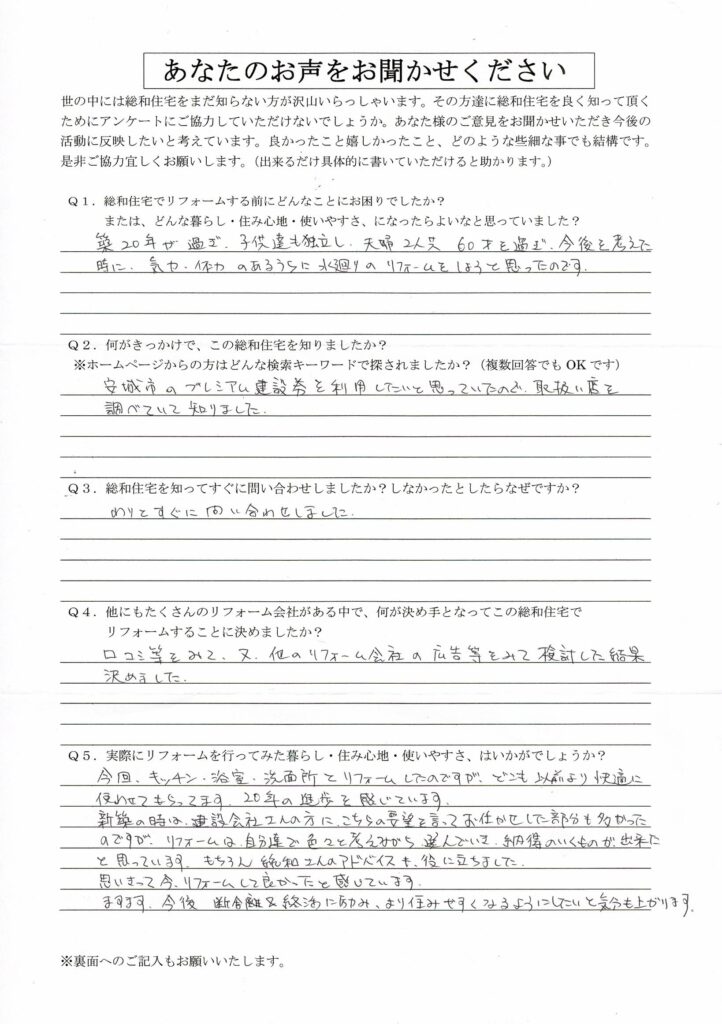 あなたのお声をお聞かせください
世の中には総和住宅をまだ知らない方が沢山いらっしゃいます。その方達に総和住宅を良く知って頂く
ためにアンケートにご協力していただけないでしょうか。あなた様のご意見をお聞かせいただき今後の
活動に反映したいと考えています。良かったこと嬉しかったこと、どのような些細な事でも結構です。
是非ご協力宜しくお願いします。（出来るだけ具体的に書いていただけると助かります。）
Ｑ１．総和住宅でリフォームする前にどんなことにお困りでしたか？
または、どんな暮らし・住み心地・使いやすさ、になったらよいなと思っていました？
築20年が過ぎ、子供達も独立し、夫婦2人共 60才を過ぎ、今後を考えた
時に、気力・体力のあるうちに水廻りのリフォームをしようと思ったのです。
Ｑ２．何がきっかけで、この総和住宅を知りましたか？
※ホームページからの方はどんな検索キーワードで探されましたか？（複数回答でも OK です）
安城市のプレミアム建設券を利用したいと思っていたので、取扱い店を
調べていて知りました。
Ｑ３．総和住宅を知ってすぐに問い合わせしましたか？しなかったとしたらなぜですか？
わりとすぐに問い合わせしました。
Ｑ４．他にもたくさんのリフォーム会社がある中で、何が決め手となってこの総和住宅で
リフォームすることに決めましたか？
口コミ等をみて、又、他のリフォーム会社の広告等をみて検討した結果
決めました。
Ｑ５．実際にリフォームを行ってみた暮らし・住み心地・使いやすさ、はいかがでしょうか？
今回、キッチン・浴室・洗面所とリフォームしたのですが、どこも以前より快適に
使わせてもらってます。20年の進歩を感じています。
新築の時は、建設会社さんの方に、こちらの要望を言ってお任せした部分も多かった
のですが、リフォームは、自分達で色々と考えながら選んでいき、納得のいくものが出来た
と思っています。もちろん総和さんのアドバイスも、役に立ちました。
思いきって今、リフォームして良かったと感じています。
ますます、今後 断舎離＆終活に励み、より住みやすくなるようにしたいと気分も上がります。
※裏面へのご記入もお願いいたします。